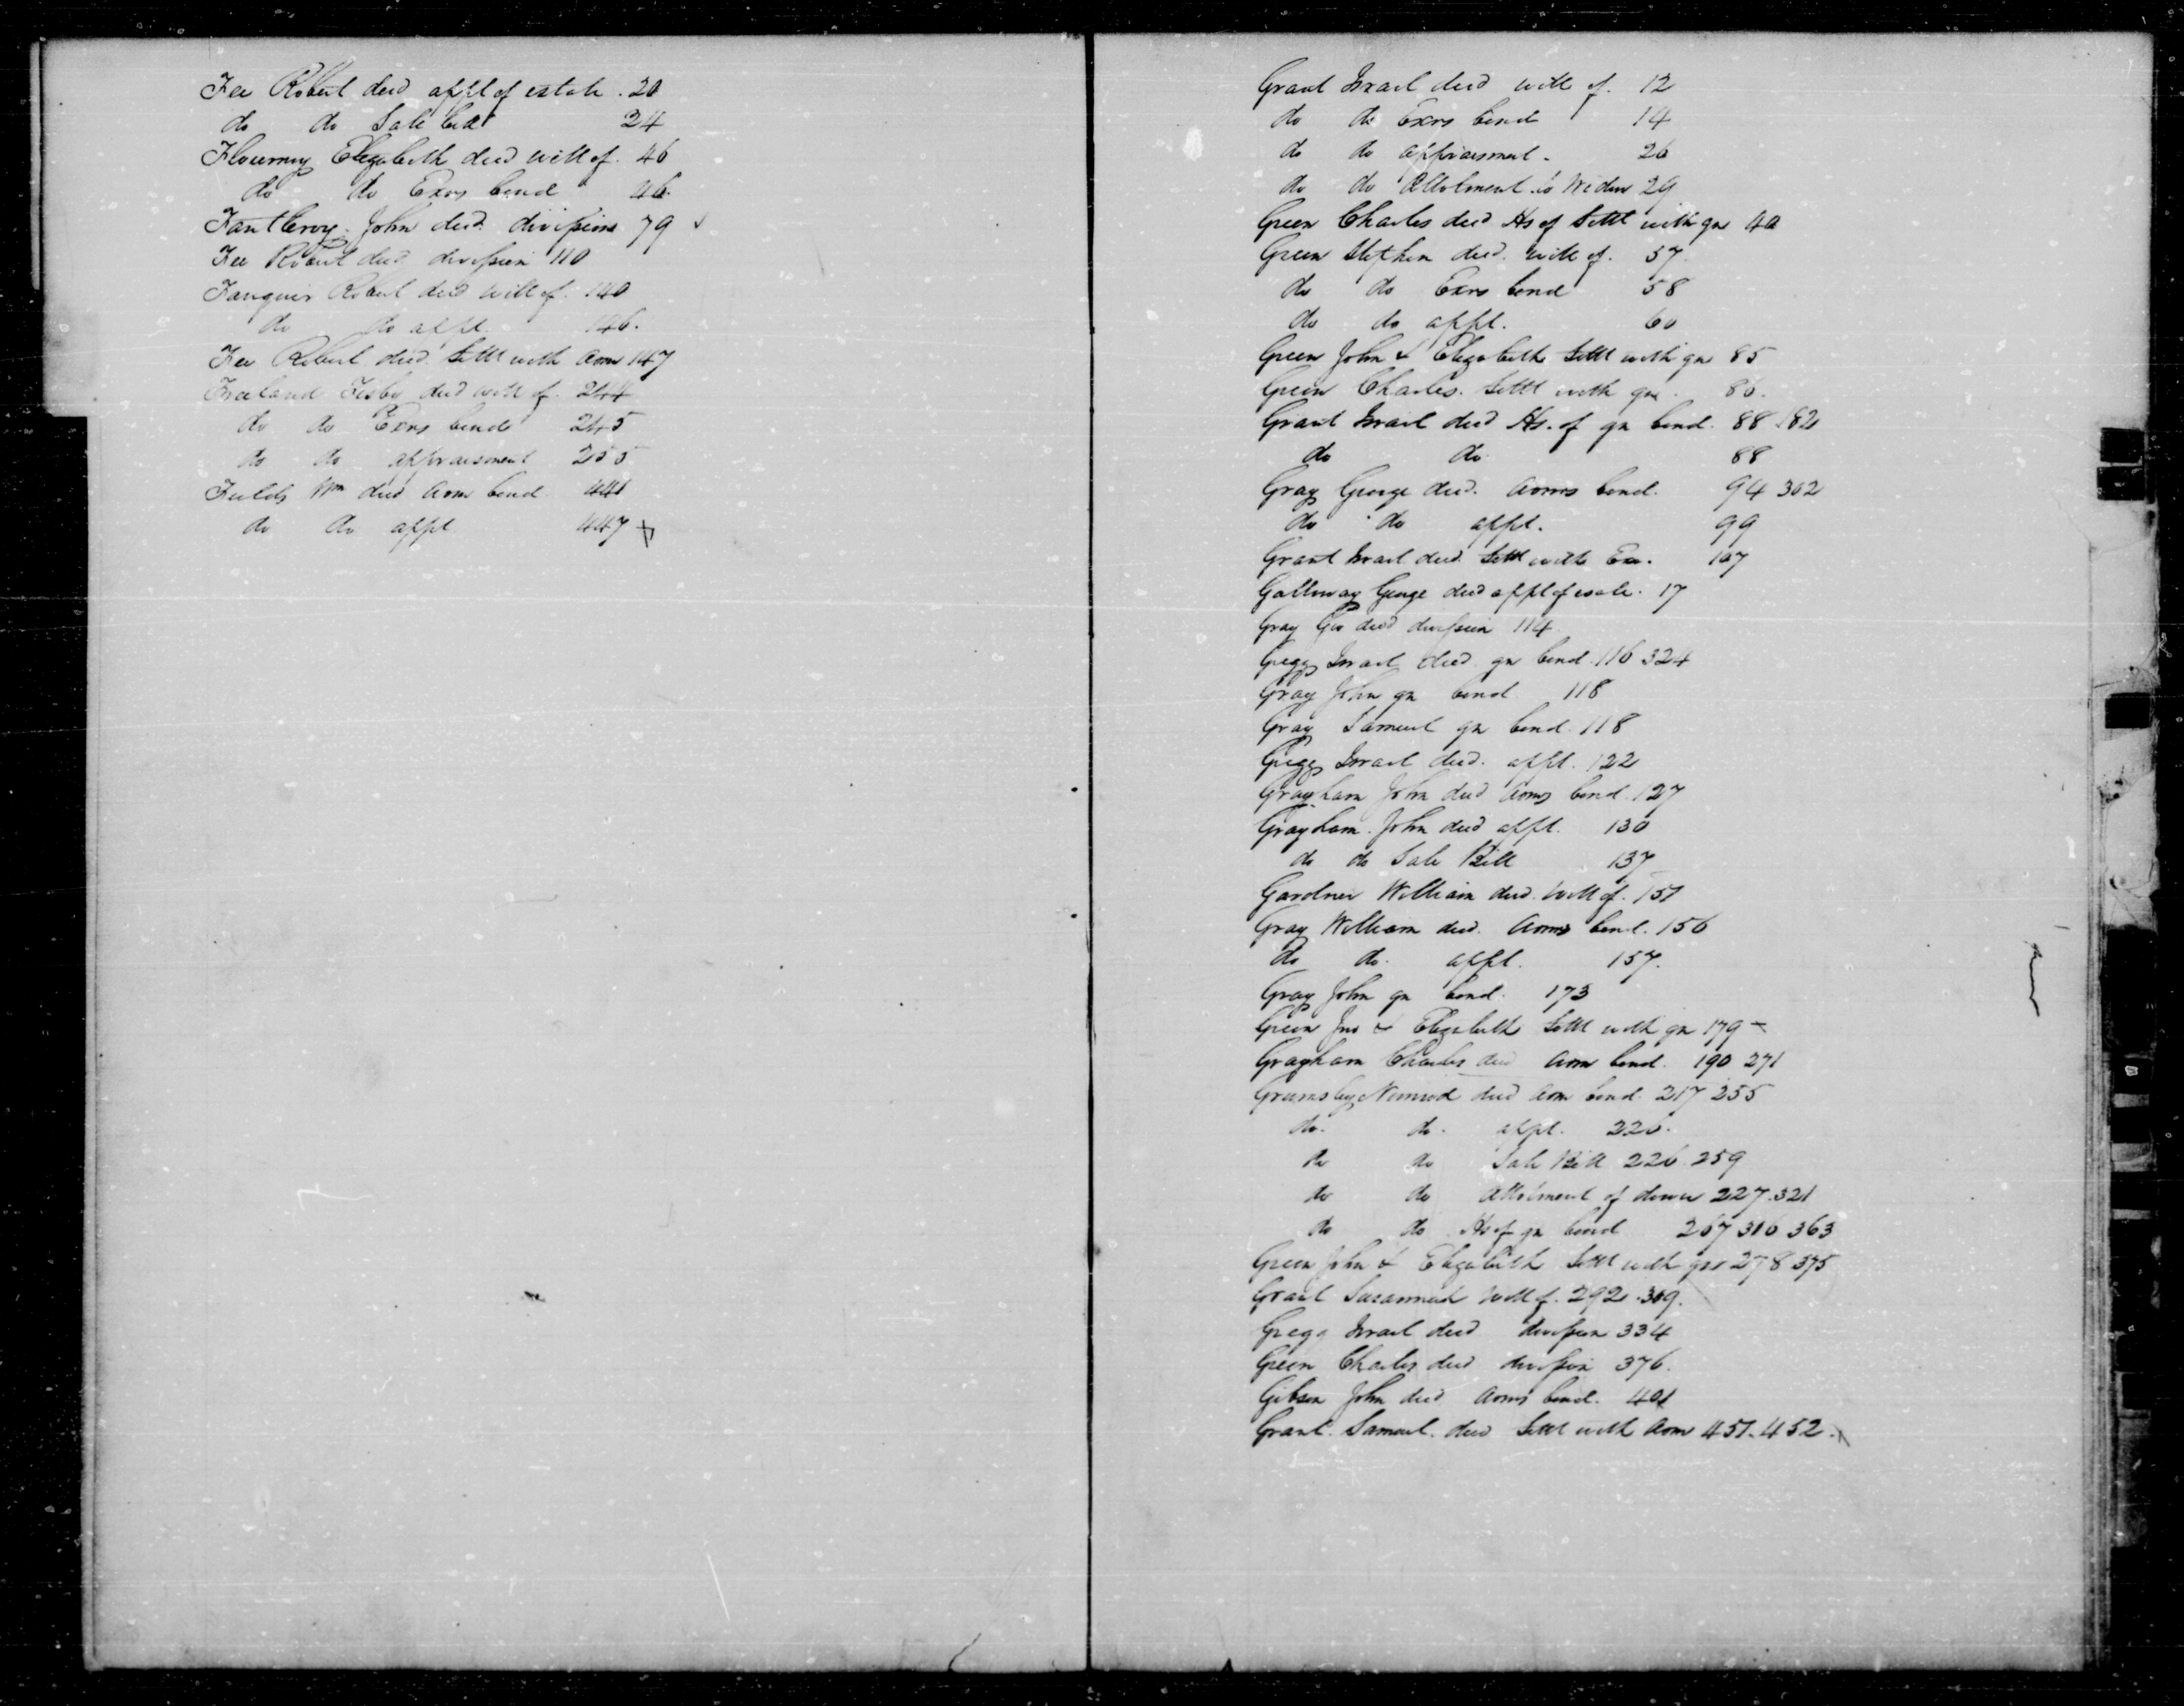 Fee Robert decd applt of estate . 20
do do Sale bill 24
Flournoy Elizabeth decd will of . 46
do do Exrs bond 46.
Fantleroy . John decd. division 79
Fee Robert decd division 110
Fauquier Robert decd will of . 140
do do applt. 146.
Fee Robert decd. Settt with Adm 147
Freeland Frisby decd will of . 244
do do Exrs bond 245
do do appraisment 255
Fields Wm decd Adm bond 441
do do applt 447
Grant Israel decd will of . 12
do do Exrs bond 14
do do appraisment . 26
do do Allotment to Widow 29
Green Charles decd Hs of Settt with gn 40
Green Stephen decd. will of . 57.
do do Exrs bond 58
do do applt. 60
Green John & Elizabeth Settt with gn 85
Green Charles. Settt with gn . 86.
Grant Israel decd Hs. of gn bond. 88 182
do do 88
Gray George decd. Admrs bond. 94 302
do do applt. 99
Grant Israel decd. Settt with Exr. 107
Galloway George decd applt of estate. 17
Gray Geo decd division 114
Gregg Israel decd. gn bond. 116 324
Gray John gn bond 118
Gray Samuel gn bond. 118
Gregg Israel decd. applt. 122
Grayham John decd Adms bond. 127
Grayham. John decd applt. 130
do do Sale Bill 137
Gardner William decd. will of . 151
Gray William decd. Adms bond. 156
do do. applt. 157.
Gray John gn bond. 173
Green Jno & Elizabeth Settt with gn 179
Grayham Charles decd Adm bond. 190 271
Grumsley Nimrod decd adm bond. 217 255
do. do. applt. 226.
do do Sale Bill 226 259
do do Allotment of dower 227. 321
do do Hs of gn bond 267 316 363
Green John & Elizabeth Settt with gn 278 375
Grant Susannah will of . 292 . 309.
Gregg Israel decd division 334
Green Charles decd division 376.
Gibson John decd Adms bond. 401
Grant. Samuel. decd Settt with Adm 451. 452.